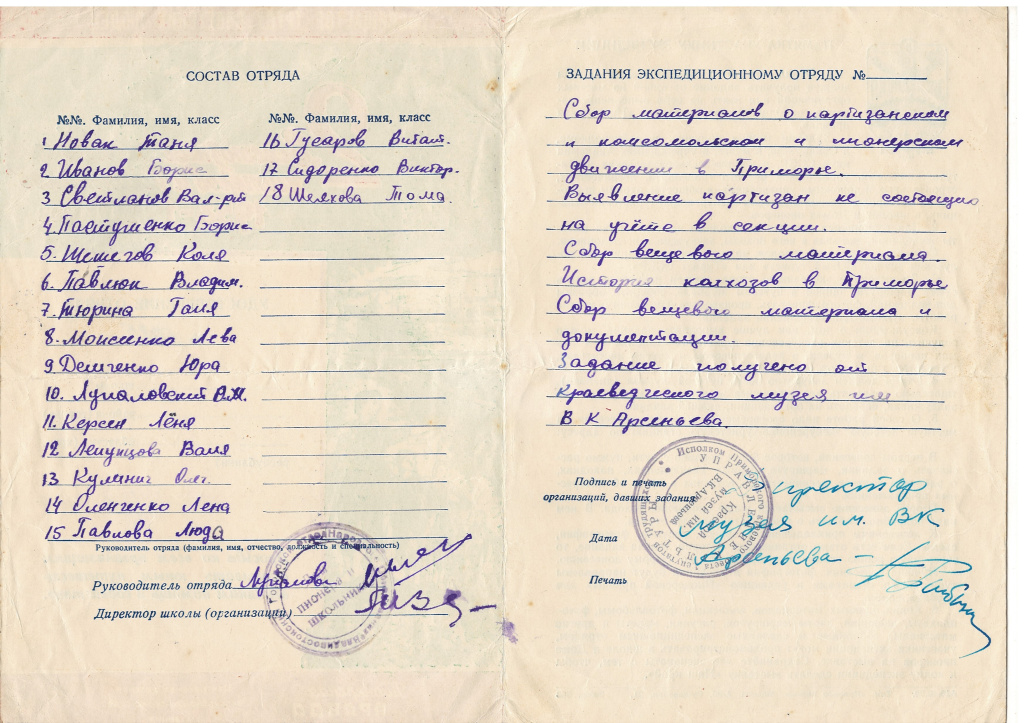 СОСТАВ ОТРЯДА
№№. Фамилия, имя, класс
1 Новак Таня
2 Иванов Борис
3 Светланов Вал-рт
4. Пастушенко Борис
5. Шешегов Коля
6. Павлюк Владим.
7. Тюрина Галя
8. Моисеенко Лева
9 Демченко Юра
10. Лупаловский
11. Керсен Лёня
12 Лепунцова Валя
13 Кулинич Олг.
14 Оленченко Лена
15 Павлова Люда
№№. Фамилия, имя, класс
16 Гусаров Витал.
17 Сидоренко Виктор.
18 Шелхова Тома.
Руководитель отряда (фамилия, имя, отчество, должность и специальность)
Руководитель отряда
Директор школы (организации)
пионеров и
школьников
ЗАДАНИЯ ЭКСПЕДИЦИОННОМУ ОТРЯДУ №
Сбор материалов о партизанском
и комсомольском и пионерском
движении в Приморье.
Выявление партизан не состоящих
на учёте в секции.
Сбор вещевого материала.
История колхозов в Приморье
Сбор вещевого материала и
документации.
Задание получено от
краеведческого музея им
В К Арсеньева.
Подпись и печать
организаций, давших задания
Директор
музея им. ВК
Дата
Арсеньева
Печать
Исполком Приморского краевого Совета депутатов трудящихся
УПРАВЛЕНИЕ КУЛЬТУРЫ
Краев
музей им
В.К.Арсеньева